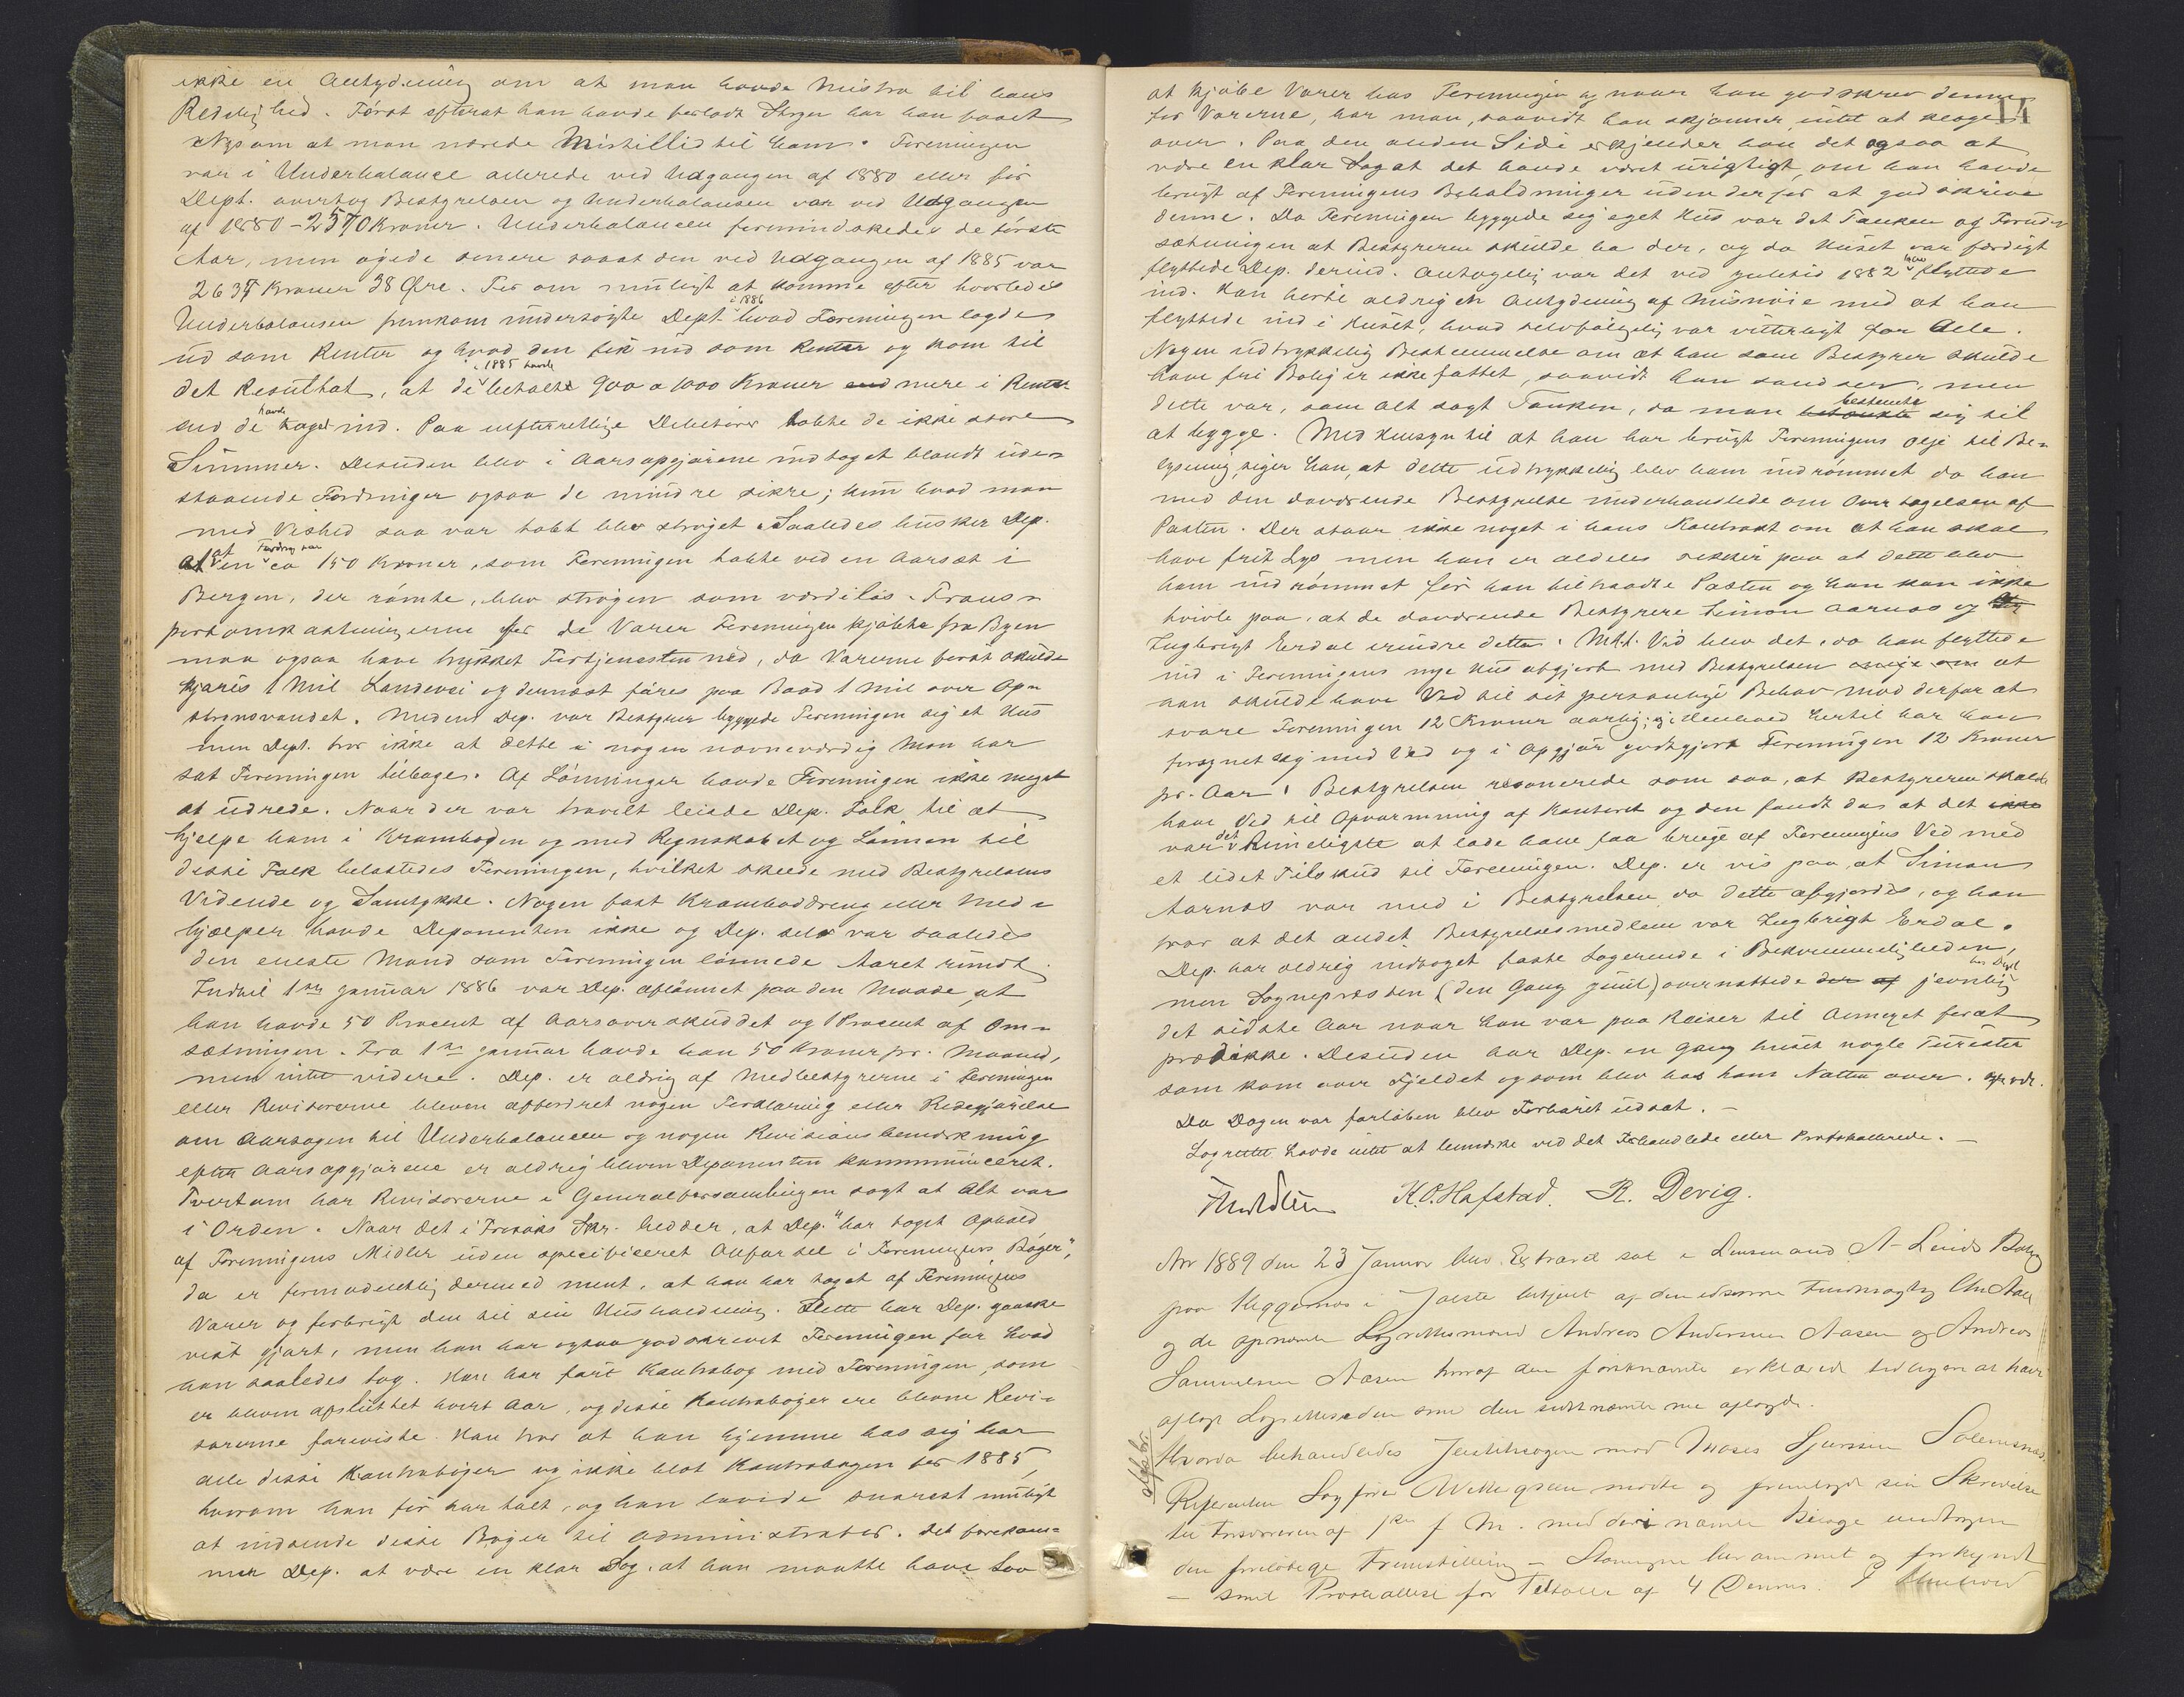 ikke en Antydning om at man havde Mistro til hans
Redelighed. Først efterat han havde forladt Stryn har han faaet
Nys om at man nærede Mistillid til ham. Foreningen
var i Underbalance allerede ved Udgangen af 1880 eller før
Dept. overtog Bestyrelsen og Underbalansen var ved Udgangen
af 1880 - 2570 Kroner. Underbalancen formindskedes de første
Aar, men øgede senere saaat den ved Udgangen af 1885 var
2637 Kroner 38 Øre. For om muligt at komme efter hvorledes
Underbalansen fremkom undersøgte Dept. i 1886 hvad Foreningen lagde
ud som Renter og hvad den fik ind som Renter og kom til
det Resulthat, at de i 1885 havde betalt 900 a 1000 Kroner mere i Renter
end de havde taget ind. Paa uefterrettlige Debitorer tabte de ikke store
Summer. Desuden blev i Aarsopgjørene indtaget blandt ude-
staaende Fordringer ogsaa de mindre sikre; kun hvad man
med Vished saa var tabt blev strøget. Saaledes husker Dep.
at en Fordring paa ca 150 Kroner, som Foreningen tabte ved en Aarsæt i
Bergen, der rømte, blev strøgen som værdiløs. Trans-
portomkostningerne for de Varer Foreningen kjøbte fra Byen
maa ogsaa have trykket Fortjenesten ned, da Varerne først skulde
kjøres 1 Mil Landevei og dernæst føres paa Baad 1 Mil over Op-
strynsvandet. Medens Dep. var Bestyrer byggede Foreningen sig et Hus
men Dept. tror ikke at dette i nogen navneværdig Mon har
sat Foreningen tilbage. Af Lønninger havde Foreningen ikke meget
at udrede. Naar der var travelt leiede Dep. Folk til at
hjelpe ham i Kramboden og med Regnskabet og Lønnen til
disse Folk belastedes Foreningen, hvilket skeede med Bestyrelsens
Vidende og Samtykke. Nogen fast Kramboddreng eller Med-
hjælper havde Deponenten ikke og Dep. selv var saaledes
den eneste Mand som Foreningen lønnede Aaret rundt.
Indtil 1ste Januar 1886 var Dep. aflønnet paa den Maade, at
han havde 50 Procent af Aarsoverskuddet og 1 Procent af Om-
sætningen. Fra 1ste Januar havde han 50 Kroner pr. Maaned,
men intet videre. Dep. er aldrig af Medbestyrerne i Foreningen
eller Revisorerne bleven affordret nogen Forklaring eller Redegjørelse
om Aarsagen til Underbalancen og nogen Revisionsbemærkning
efter Aarsopgjørene er aldrig bleven Deponenten kommuniceret.
Tvertom har Revisorerne i Generalforsamlingen sagt at Alt var
i Orden. Naar det i Skr. hedder, at Dep. "har taget Ophold
af Foreningens Midler uden specificeret Anførsel i Foreningens Bøger",
da er formodentlig dermed ment, at han har taget af Foreningens
Varer og forbrugt dem til sin Husholdning. Dette har Dep. ganske
vist gjort, men han har ogsaa godskrevet Foreningen for hvad
han saaledes tog. Han har ført Kontrabog med Foreningen, som
er bleven afsluttet hvert Aar, og disse Kontrabøger ere blevne Revi-
sorerne foreviste. Han tror at han hjemme hos sig har
alle disse Kontrabøger og ikke blot Kontrabogen for 1885,
hvorom han før har talt, og han lovede snarest muligt
at indsende disse Bøger til Administrator. Det forekom-
mer Dep. at være en klar Sag, at han maatte have Lov
at kjøbe Varer hos Foreningen og naar han godskrev denne
for Varerne, har man, saavidt han skjønner, intet at klage
over. Paa den anden Side erkjender han det ogsaa at
være en klar Sag at det havde været urigtigt, om han havde
brugt af Foreningens Beholdninger uden derfor at godskrive
denne. Da Foreningen byggede sig eget Hus var det Tanken og Forud-
sætningen at Bestyreren skulde bo der, og da Huset var færdigt
flyttede Dep. derind. Antagelig var det ved Juletid 1882 han flyttede
ind. Han hørte aldrig en Antydning af Misnøie med at han
flyttede ind i Huset, hvad selvfølgelig var vitterligt for Alle.
Nogen udtrykkelig Bestemmelse om at han som Bestyrer skulde
have fri Bolig er ikke fattet, saavidt han sandser, men
dette var, som alt sagt Tanken, da man bestemte sig til
at bygge. Med Hensyn til at han har brugt Foreningens Olje til Be-
lysning, siger han, at dette udtrykkelig blev ham indrømmet da han
med den daværende Bestyrelse underhandlede om Overtagelsen af
Posten. Der staar ikke noget i hans Kontrakt om at han skal
have frit Lys men han er aldeles sikker paa at dette blev
ham indrømmet før han tiltraadte Posten og han kan ikke
tvivle paa, at de daværende Bestyrere Simon Aarnæs og
Ingbrigt Erdal erindre dette. M.H.t. Ved blev det, da han flyttede
ind i Foreningens nye Hus afgjort med Bestyrelsen at
han skulde have Ved til sit personlige Behov mod derfor at
svare Foreningen 12 Kroner aarlig; og i Henhold hertil har han
forsynet sig med Ved og i Opgjør godtgjort Foreningen 12 Kroner
pr. Aar. Bestyrelsen resonerede som saa, at Bestyreren skulde
have Ved til Opvarmning af Kontoret og den fandt da at det
var det Rimeligste at lade ham faa bruge af Foreningens Ved med
et lidet Tilskud til Foreningen. Dep. er vis paa, at Simon
Aarnæs var med i Bestyrelsen da dette afgjordes, og han
tror at det andet Bestyrelsesmedlem var Ingbrigt Erdal.
Dep. har aldrig indtaget faste Logerende i Bekvemmeligheden,
men Sognepresten (den Gang Juul) overnattede jevnlig hos Dept.
det sidste Aar naar han var paa Reiser til Annexet forat
prædikke. Desuden har Dep. en Gang huset nogle Turister
som kom over Fjeldet og som blev hos ham Natten over.
Da Dagen var forløben blev Forhøret udsat. -
Lagrettet havde intet at bemærke ved det Forhandlede eller Protokollerede. -
K.O. Hafstad. R. Devig.
Aar 1889 den 23 Januar blev Extraret sat i Lensmand A. Lunds Bolig
paa i Jølster betjent af den edsvorne Fuldmægtig Chr Aall
og de opnævnte Lagrettesmænd Andreas Andersen Aasen og Andreas
Samuelsen Aasen hvoraf den førstnævnte erklærede tidligere at have
aflagt Lagrettesseden som den sidstnævnte nu aflagde.
Hvorda behandledes Justitssagen mod Moses Sjursen Solemsnæs.
Referenten Sagfører mødte og fremlagde sin Skrivelse
til Forsvareren af 1ste f M. med deri nævnte Bilage undtagen
den foreløbige Fremstilling -
- samt Provokation for Tiltalte af 4 Dennes. I Henhold